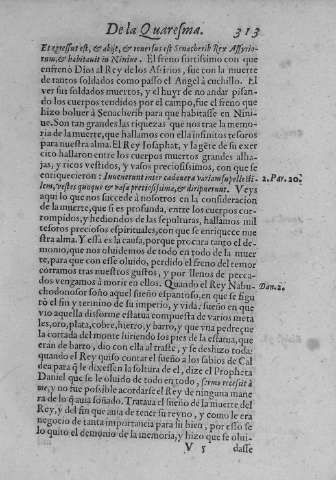 De la Quaresma. 313
Et egressus est, & abijt, & reuersus est Senacherib Rex Assyrio-
rum, & habitauit in Niniue. El freno fortissimo con que
enfrenò Dios al Rey de los Asirios, fue con la muerte
de tantos soldados como passo el Angel à cuchillo. El
ver sus soldados muertos, y el huyr de no andar pisan-
do los cuerpos tendidos por el campo, fue el freno que
hizo boluer à Senacherib para que habitasse en Nini-
ue. Son tan grandes las riquezas que nos trae la memo-
ria de la muerte, que hallamos con ella infinitos tesoros
para nuestra alma. El Rey Josaphat, y la gẽte de su exer
cito hallaron entre los cuerpos muertos grandes alha-
jas, y ricos vestidos, y vasos preciosissimos, con que se
enriquecieron: Inuenerunt inter cadauera variam supellecti- 2. Par. 20.
lem, vestes quoque & vasa preciosissima, & diripuerunt. Veys
aqui lo que nos succede à nosotros en la consideracion
de la muerte, que si es profunda, entre los cuerpos cor-
rompidos, y hediondos de las sepulturas, hallamos mil
tesoros preciosos espirituales, con que se enriquece nue
stra alma. Y essa es la causa, porque procura tanto el de-
monio, que nos oluidemos de todo en todo de la muer
te, para que con esse oluido, perdido el freno del temor
corramos tras nuestros gustos, y por llenos de pecca-
dos vengamos à morir en ellos. Quando el Rey Nabu- Dan. 2.
chodonosor soño aquel sueño espantoso, en que se figu
rò el fin y termino de su imperio, y vida, sueño en que
vio aquella disforme estatua compuesta de varios meta
les, oro, plata, cobre, hierro, y barro, y que vna piedra que
la cortada del monte hiriendo los pies de la estatua, que
eran de barro, dio con ella al traste, y se deshizo toda:
quando el Rey quiso contar el sueño a los sabios de Cal
dea para q̃ le dixessen la soltura de el, dize el Propheta
Daniel que se le oluido de todo en todo, somno recessit à
me, y no fue possible acordarse el Rey de ninguna mane
ra de lo q̃ auia soñado. Trataua el sueño de la muerte del
Rey, y del fin que auia de tener su reyno, y como le era
negocio de tanta importancia para su bien, por esso se
lo quito el demonio de la memoria, y hizo que se olui-
V 5 dasse